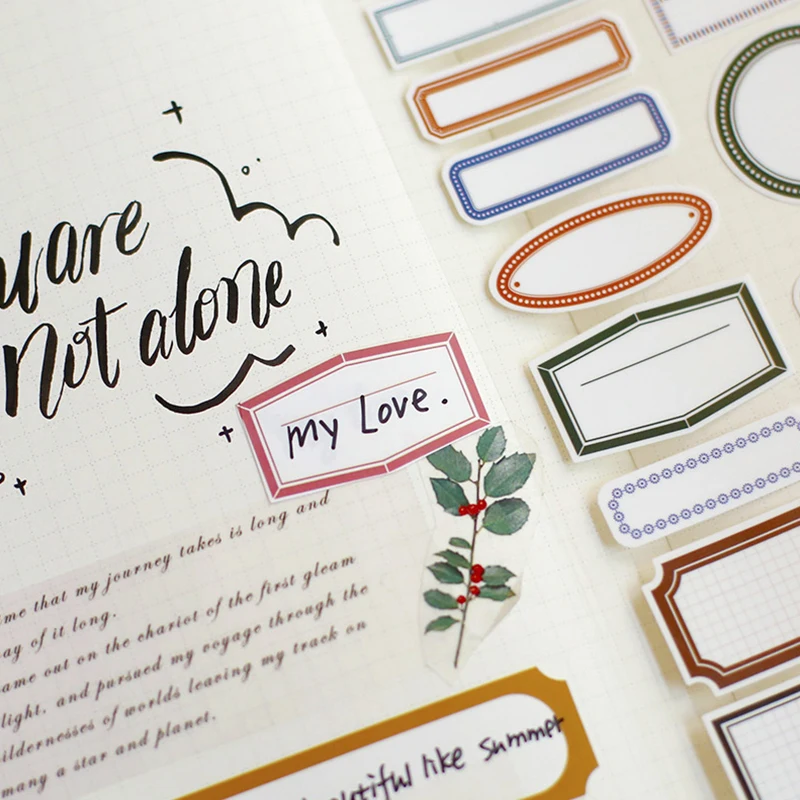 are
not alone
my Love.
that my journey takes is long and
of it long.
out on the chariot of the first gleam
light, and pursued my voyage through the
of worlds leaving my track on
many a star and planet.
like summer